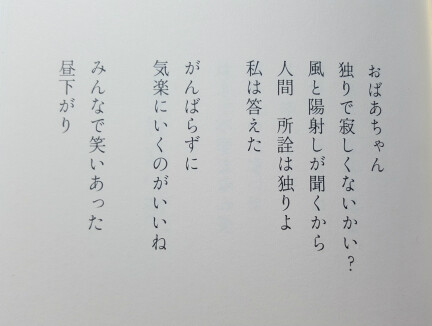 おばあちゃん
独りで寂しくないかい?
風と陽射しが聞くから
人間　所詮は独りよ
私は答えた
がんばらずに
気楽にいくのがいいね
みんなで笑いあった
昼下がり